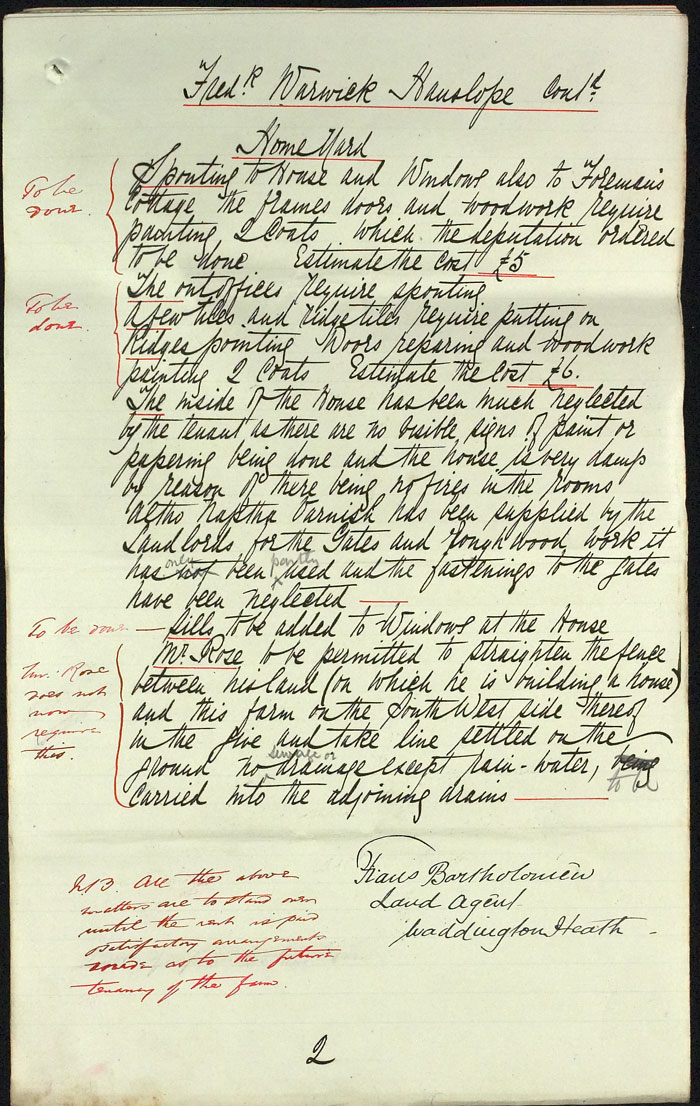 Fredk. Warwick Hanslope Contd.
Home Yard
To be done.
Spouting to House and Windows also to Foremans
Cottage the frames doors and woodwork require
painting 2 Coats which the deputation ordered
to be done Estimate the Cost £5
To be done.
The outoffices require spouting
a few tiles and ridge tiles require putting on
Ridges pointing Doors repairing and woodwork
painting 2 Coats Estimate the Cost £6.
The inside of the House has been much neglected
by the tenant as there are no visible signs of paint or
papering being done and the house is very damp
by reason of there being no fires in the rooms
Altho Naptha Varnish has been supplied by the
Landlords for the Gates and rough wood work it
has not only been partly used and the fastenings to the gates
have been neglected
To be done — Sills to be added to Windows at the House
Mr. Rose does not now require this.
Mr. Rose to be permitted to straighten the fence
between his land (on which he is building a house)
and this farm on the South West side thereof
in the give and take line settled on the
ground no sewage or drainage except rain-water, being to be
carried into the adjoining drains
Frans Bartholomew
Land Agent
Waddington Heath
N.B. All the above
matters are to stand over
until the rent is paid
satisfactory arrangements
made as to the future
tenancy of the farm.
2